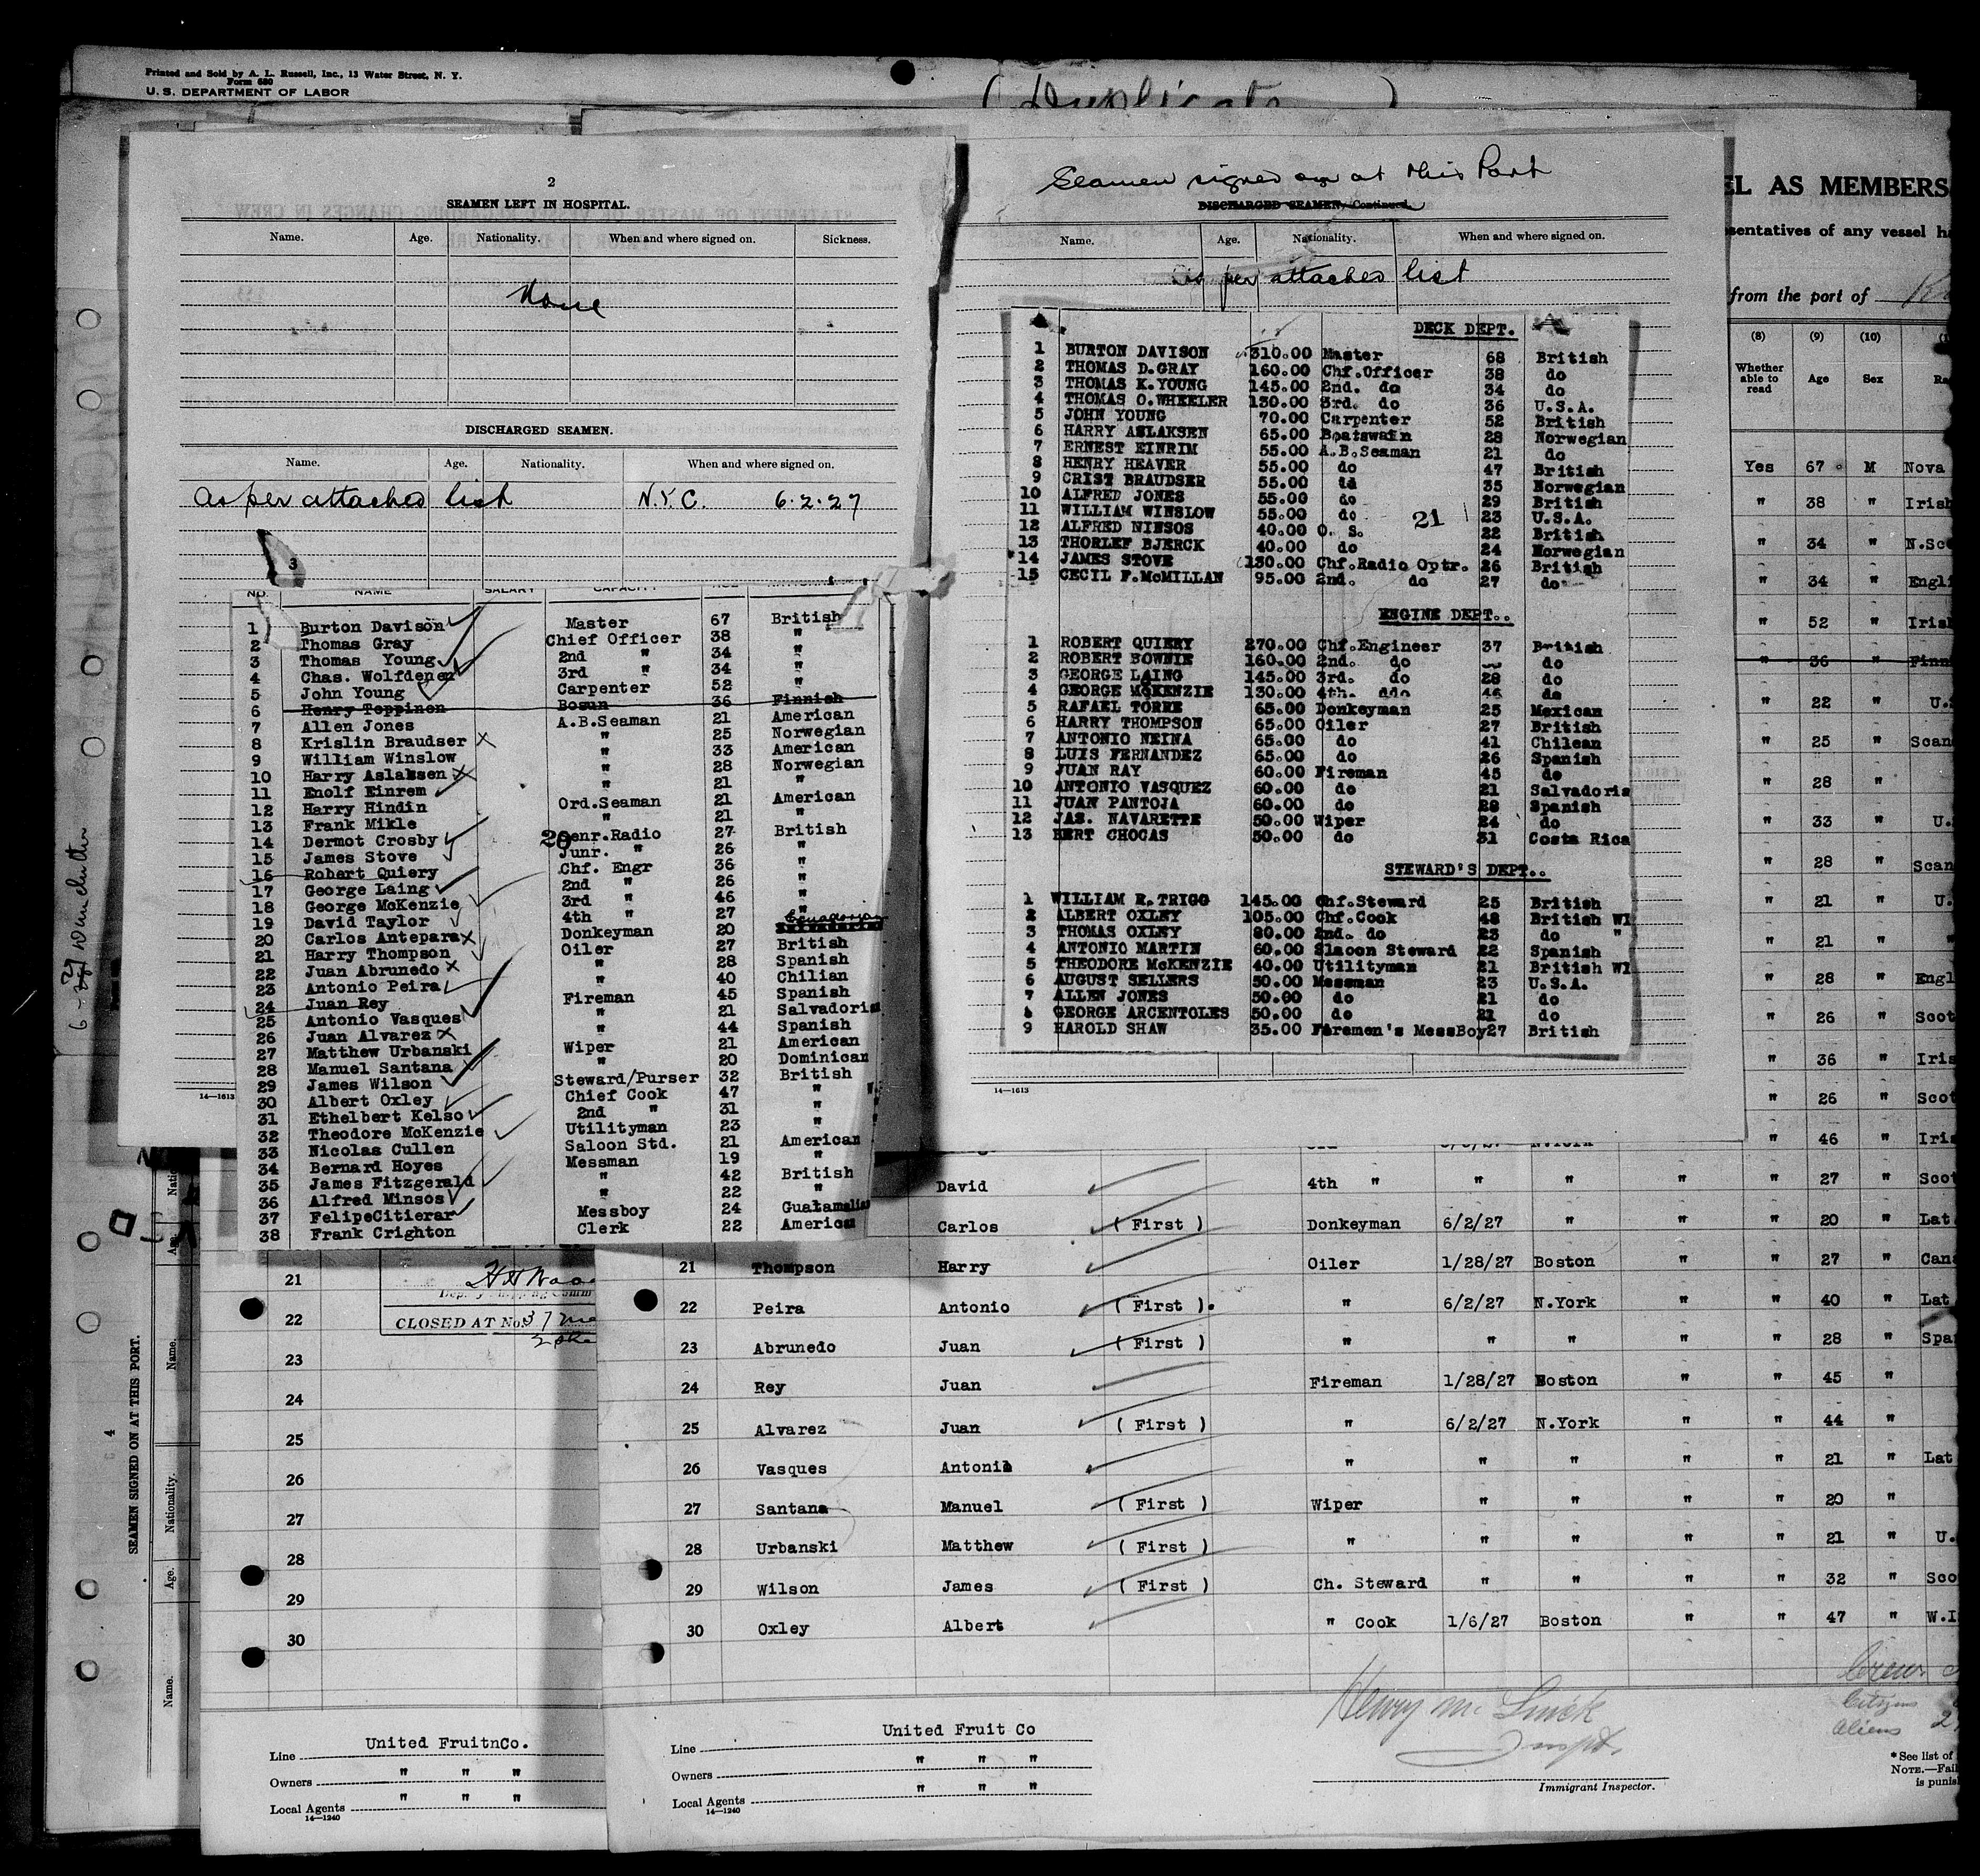 Printed and Sold by A. L. Russell, Inc., 13 Water Street, N. Y.
Form 680
U. S. DEPARTMENT OF LABOR
( Duplicate )
2
SEAMEN LEFT IN HOSPITAL.
Name. Age. Nationality. When and where signed on. Sickness.
None
DISCHARGED SEAMEN.
Name. Age. Nationality. When and where signed on.
As per attached list N.Y.C. 6-2-27
3
NO. NAME SALARY CAPACITY AGE
1 Burton Davison Master 67 British
2 Thomas Gray Chief Officer 38 "
3 Thomas Young 2nd " 34 "
4 Chas. Wolfdenen 3rd " 34 "
5 John Young Carpenter 52 "
6 Henry Toppinen Bosun 36 Finnish
7 Allen Jones A.B.Seaman 21 American
8 Krislin Braudser " 25 Norwegian
9 William Winslow " 33 American
10 Harry Aslaksen " 28 Norwegian
11 Enolf Einrem " 21 "
12 Harry Hindin Ord.Seaman 21 American
13 Frank Mikle " 21 "
14 Dermot Crosby Senr.Radio 27 British
20
15 James Stove Junr. " 26 "
16 Robert Quiery Chf. Engr 36 "
17 George Laing 2nd " 26 "
18 George McKenzie 3rd " 46 "
19 David Taylor 4th " 27 "
20 Carlos Antepara Donkeyman 20 Ecuadorian
21 Harry Thompson Oiler 27 British
22 Juan Abrunedo " 28 Spanish
23 Antonio Peira " 40 Chilian
24 Juan Rey Fireman 45 Spanish
25 Antonio Vasques " 21 Salvadorian
26 Juan Alvarez " 44 Spanish
27 Matthew Urbanski Wiper 21 American
28 Manuel Santana " 20 Dominican
29 James Wilson Steward/Purser 32 British
30 Albert Oxley Chief Cook 47 " W.
31 Ethelbert Kelso 2nd " 31 "
32 Theodore McKenzie Utilityman 23 "
33 Nicolas Cullen Saloon Std. 21 American
34 Bernard Hoyes Messman 19 "
35 James Fitzgerald " 42 British
36 Alfred Minsos " 22 "
37 FelipeCitierar Messboy 24 Guatamalian
38 Frank Crighton Clerk 22 America
14—1613
Seamen signed on at this Port
DISCHARGED SEAMEN, Continued.
Name. Age. Nationality. When and where signed on.
As per attached list
DECK DEPT.
1 BURTON DAVISON 310.00 Master 68 British
2 THOMAS D.GRAY 160.00 Chf.Officer 38 do
3 THOMAS K.YOUNG 145.00 2nd. do 34 do
4 THOMAS O.WHEELER 130.00 3rd. do 36 U.S.A.
5 JOHN YOUNG 70.00 Carpenter 52 British
6 HARRY ASLAKSEN 65.00 Boatswain 28 Norwegian
7 ERNEST EINRIM 55.00 A.B.Seaman 21 do
8 HENRY HEAVER 55.00 do 47 British
9 CRIST BRAUDSER 55.00 do 35 Norwegian
10 ALFRED JONES 55.00 do 29 British
11 WILLIAM WINSLOW 55.00 do 23 U.S.A.
21
12 ALFRED NINSOS 40.00 O. S. 22 British
13 THORLEF BJERCK 40.00 do 24 Norwegian
14 JAMES STOVE 130.00 Chf.Radio Optr. 26 British
15 CECIL F.McMILLAN 95.00 2nd. do 27 do
ENGINE DEPT..
1 ROBERT QUIERY 270.00 Chf.Engineer 37 British
2 ROBERT BOWNIE 160.00 2nd. do do
3 GEORGE LAING 145.00 3rd. do 28 do
4 GEORGE McKENZIE 130.00 4th. ddo 46 do
5 RAFAEL TORRE 65.00 Donkeyman 25 Mexican
6 HARRY THOMPSON 65.00 Oiler 27 British
7 ANTONIO NEINA 65.00 do 41 Chilean
8 LUIS FERNANDEZ 65.00 do 26 Spanish
9 JUAN RAY 60.00 Fireman 45 do
10 ANTONIO VASQUEZ 60.00 do 21 Salvadoria
11 JUAN PANTOJA 60.00 do 28 Spanish
12 JAS. NAVARETTE 50.00 Wiper 24 do
13 BERT CHOCAS 50.00 do 31 Costa Rica
STEWARD'S DEPT..
1 WILLIAM E.TRIGG 145.00 Chf.Steward 25 British
2 ALBERT OXLEY 105.00 Chf.Cook 48 British WI
3 THOMAS OXLEY 80.00 2nd. do 23 do "
4 ANTONIO MARTIN 60.00 Slaoon Steward 22 Spanish
5 THEODORE McKENZIE 40.00 Utilityman 21 British WI
6 AUGUST SELLERS 50.00 Messman 23 U.S.A.
7 ALLEN JONES 50.00 do 21 do
8 GEORGE ARCENTOLES 50.00 do 21 do
9 HAROLD SHAW 35.00 Firemen's MessBoy27 British
14—1613
EL AS MEMBERS
sentatives of any vessel ha
from the port of
(8) (9) (10)
Whether able to read Age Sex Ra
Yes 67 M Nova
" 38 " Irish
" 34 " N.Sco
" 34 " Engli
" 52 " Iris
" 36 " Finn
" 22 " U.S
" 25 " Scan
" 28 "
" 33 " U.
" 28 " Scan
" 21 " U.
" 21 " "
" 28 " Engl
" 26 " Scot
" 36 " Iris
" 26 " Scot
" 46 " Iris
David 4th " " " " " 27 " Scot
Carlos ( First ) Donkeyman 6/2/27 " " " 20 " Lat
21 Thompson Harry Oiler 1/28/27 Boston " " 27 " Cana
22 Peira Antonio ( First ). " 6/2/27 N.York " " 40 " Lat
23 Abrunedo Juan ( First ) " " " " " 28 " Spa
24 Rey Juan Fireman 1/28/27 Boston " " 45 "
25 Alvarez Juan ( First ) " 6/2/27 N.York " " 44 "
26 Vasques Antonio " " " " " 21 " Lat
27 Santana Manuel ( First ) Wiper " " " " 20 "
28 Urbanski Matthew ( First ) " " " " " 21 " U.
29 Wilson James ( First ) Ch. Steward " " " " 32 " Sco
30 Oxley Albert " Cook 1/6/27 Boston " " 47 " W.I
Henry Mc
Inspt.
Immigrant Inspector.
Crew
Citizens
Aliens 2
*See list of
NOTE.—Fail
is punis
United Fruit Co
Line
Owners " " "
Local Agents " " "
14—1240
21
22
23
24
25
26
27
28
29
30
CLOSED AT No. 37
United FruitnCo.
Line
Owners " " "
Local Agents " " "
14—1240
4
SEAMEN SIGNED ON AT THIS PORT.
Name. Age. Nationality. Name. Age.